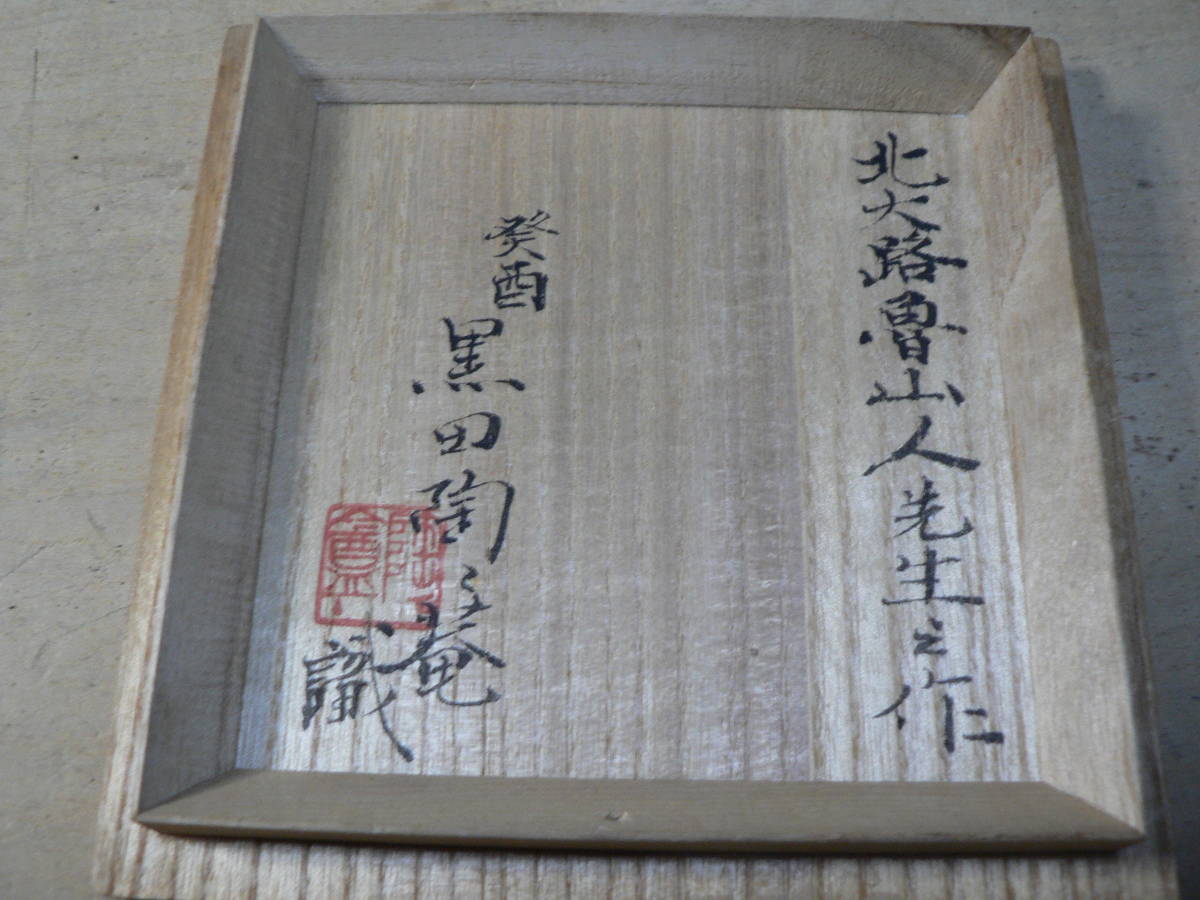 北大路魯山人先生之作
癸酉
黒田陶々菴
識